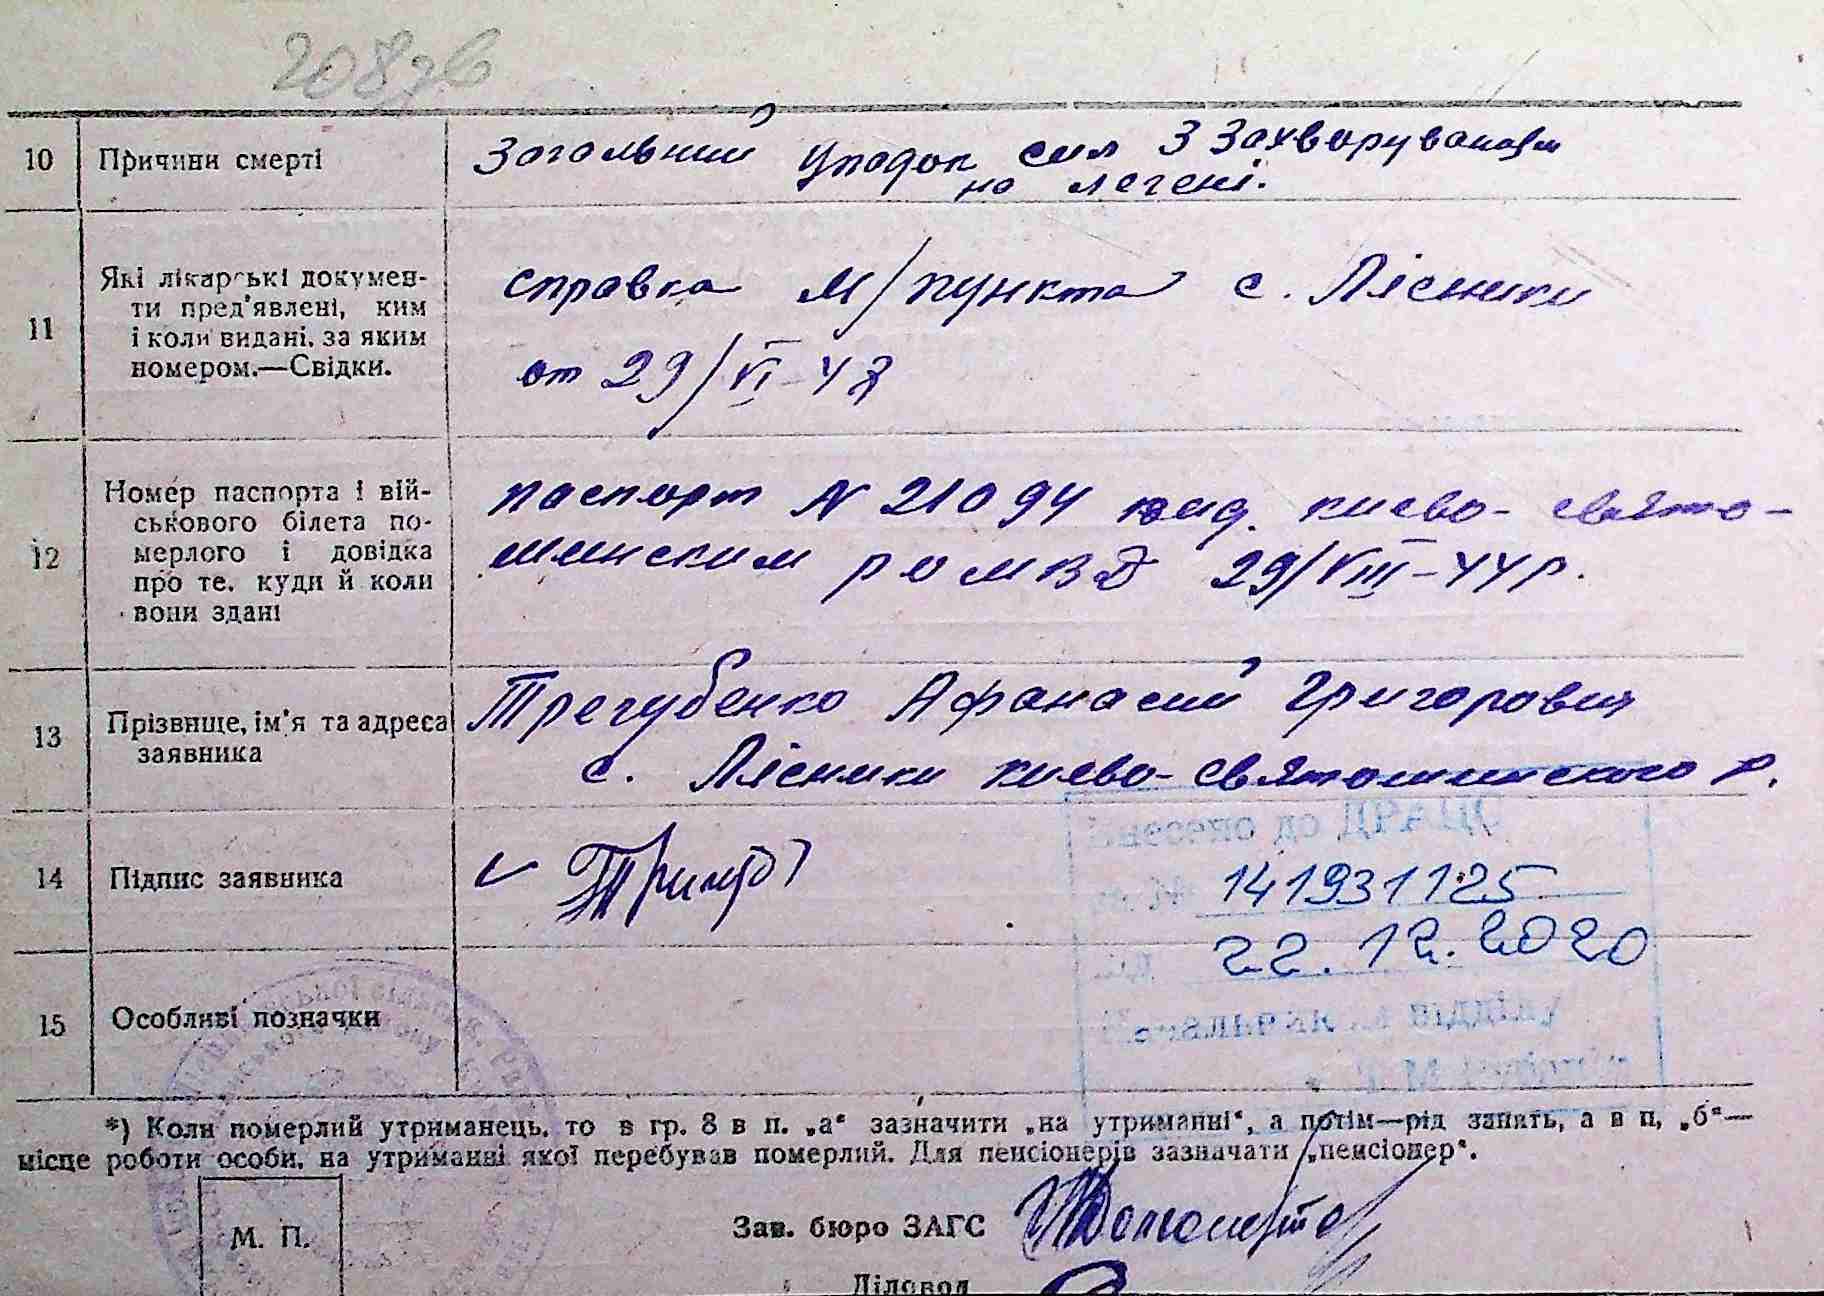 10 Причини смерті Загальний упадок сил з захворуванням
на легені.
11 Які лікарські докумен-
ти пред'явлені, ким
і коли видані, за яким
номером.—Свідки.
справка м/пункта с. Лісники
от 29/VI-47
12 Номер паспорта і вій-
ськового білета по-
мерлого і довідка
про те, куди й коли
вони здані
паспорт N 21094 вид. києво-свято-
шинским РОМВД 29/VIII-44р.
13 Прізвище, ім'я та адреса
заявника
Трегубенко Афанасий Григорович
с. Лісники києво-святошинского р.
14 Підпис заявника
141931125
22.12.2020
15 Особливі позначки
*) Коли померлий утриманець, то в гр. 8 в п. „а“ зазначити „на утриманні“, а потім—рід занять, а в п. „б“—
місце роботи особи, на утриманні якої перебував померлий. Для пенсіонерів зазначати „пенсіонер“.
М. П.
Зав. бюро ЗАГС
Діловод